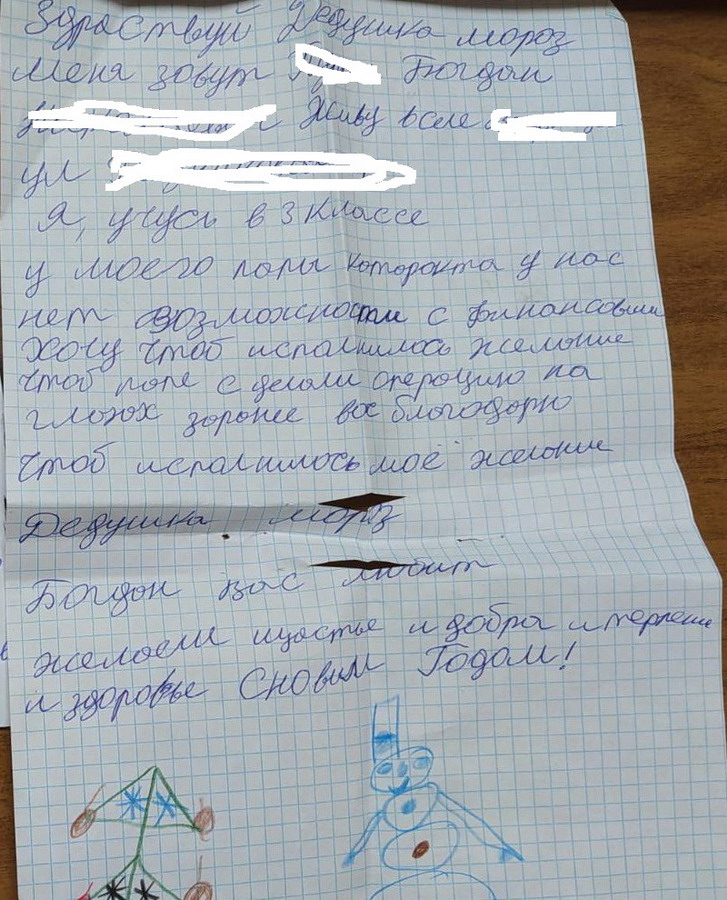 Здраствуй Дедушка мороз
Меня зовут Богдан
Живу в селе
ул
Я, учусь в 3 классе
у моего папы катаракта у нас
нет возможности с финансовыми
Хочу чтоб исполнилось желание
чтоб папе с делали операцию на
глазах заранее вас благодарю
чтоб исполнилось моё желание
Дедушка мороз
Богдан вас любит
желаем щастье и добра и терпение
и здоровье С новым Годом!